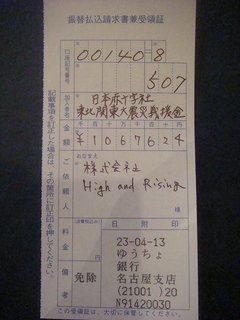 振替払込請求書兼受領証
口座記号番号
00140=8
507
加入者名
日本赤十字社
東北関東大震災義援金
金額
千 百 十 万 千 百 十 円
¥1067624
ご依頼人
おなまえ
株式会社
High and Rising
様
料金
(消費税込み)
日附印
備考
免除
23-04-13
ゆうちょ
銀行
名古屋支店
(21001)20
N91420030
記載事項を訂正した場合は、その箇所に訂正印を押してください。
この受領証は、大切に保管してください。